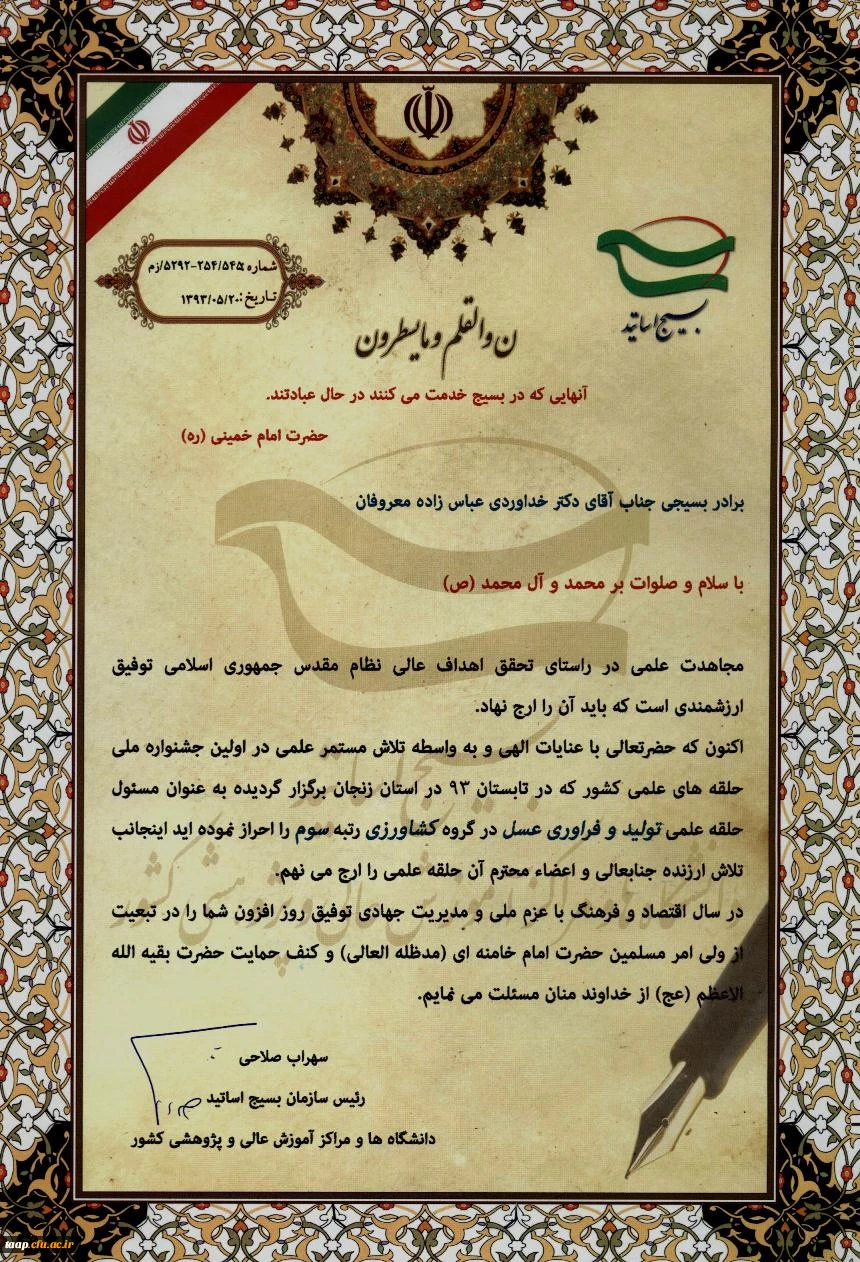 شماره ۵۲۹۲-۲۵۴/۵۴۵/زم
تاریخ: ۱۳۹۳/۰۵/۲۰
بسیج اساتید
ن والقلم و ما یسطرون
آنهایی که در بسیج خدمت می کنند در حال عبادتند.
حضرت امام خمینی (ره)
برادر بسیجی جناب آقای دکتر خداوردی عباس زاده معروفان
با سلام و صلوات بر محمد و آل محمد (ص)
مجاهدت علمی در راستای تحقق اهداف عالی نظام مقدس جمهوری اسلامی توفیق
ارزشمندی است که باید آن را ارج نهاد.
اکنون که حضرتعالی با عنایات الهی و به واسطه تلاش مستمر علمی در اولین جشنواره ملی
حلقه های علمی کشور که در تابستان ۹۳ در استان زنجان برگزار گردیده به عنوان مسئول
حلقه علمی تولید و فراوری عسل در گروه کشاورزی رتبه سوم را احراز نموده اید اینجانب
تلاش ارزنده جنابعالی و اعضاء محترم آن حلقه علمی را ارج می نهم.
در سال اقتصاد و فرهنگ با عزم ملی و مدیریت جهادی توفیق روز افزون شما را در تبعیت
از ولی امر مسلمین حضرت امام خامنه ای (مدظله العالی) و کنف حمایت حضرت بقیه الله
الاعظم (عج) از خداوند منان مسئلت می نمایم.
سهراب صلاحی
رئیس سازمان بسیج اساتید
دانشگاه ها و مراکز آموزش عالی و پژوهشی کشور
taap.cfu.ac.ir